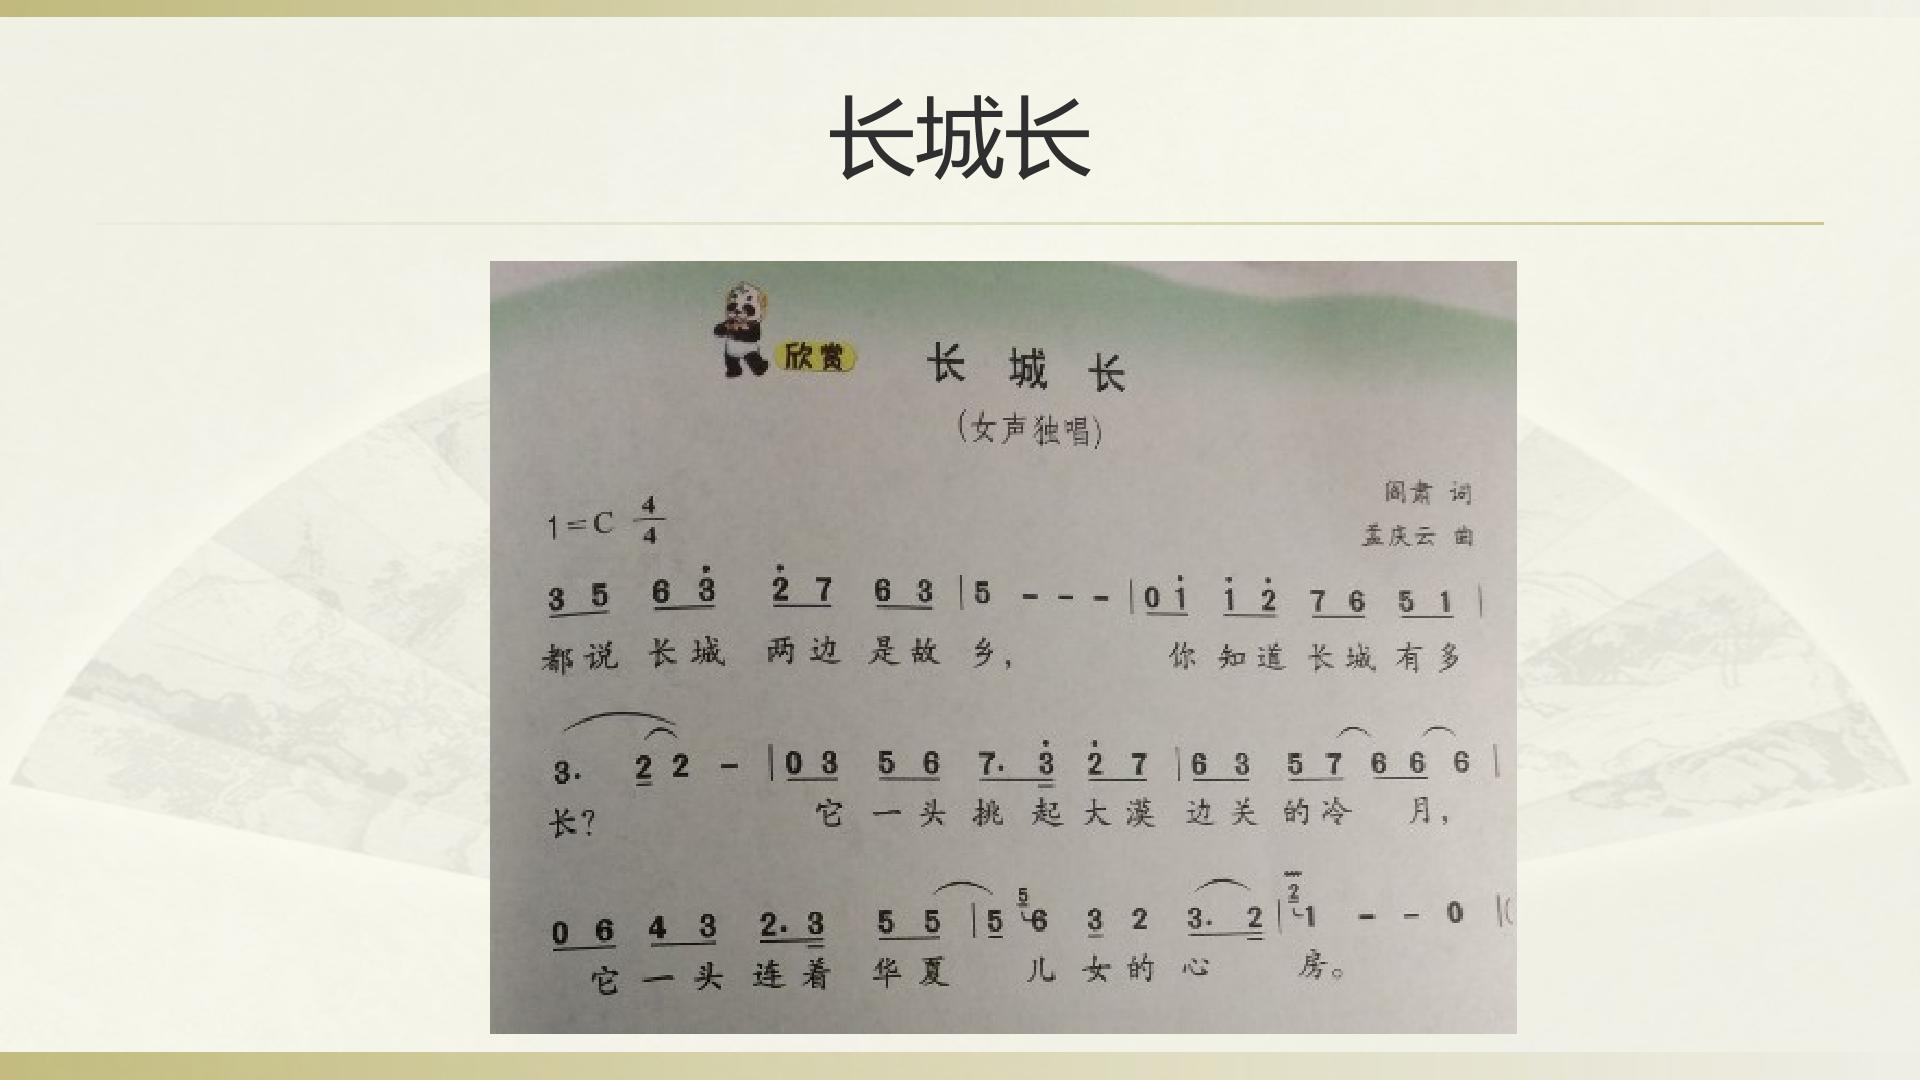 长城长
欣赏
长 城 长
(女声独唱)
阎肃 词
1=C 4/4
孟庆云 曲
3 5 6 3̇ 2̇ 7 6 3 | 5 - - - | 0 1̇ 1̇ 2̇ 7 6 5 1 |
都说 长城 两边 是故 乡, 你 知道 长城 有多
3. 2 2 - | 0 3 5 6 7. 3̇ 2̇ 7 | 6 3 5 7 6 6 6 |
长? 它 一头 挑 起 大漠 边关 的冷 月,
0 6 4 3 2. 3 5 5 | 5 5 6 3 2 3. 2 | 2 1 - - 0 |(
它 一头 连着 华夏 儿 女的 心 房。